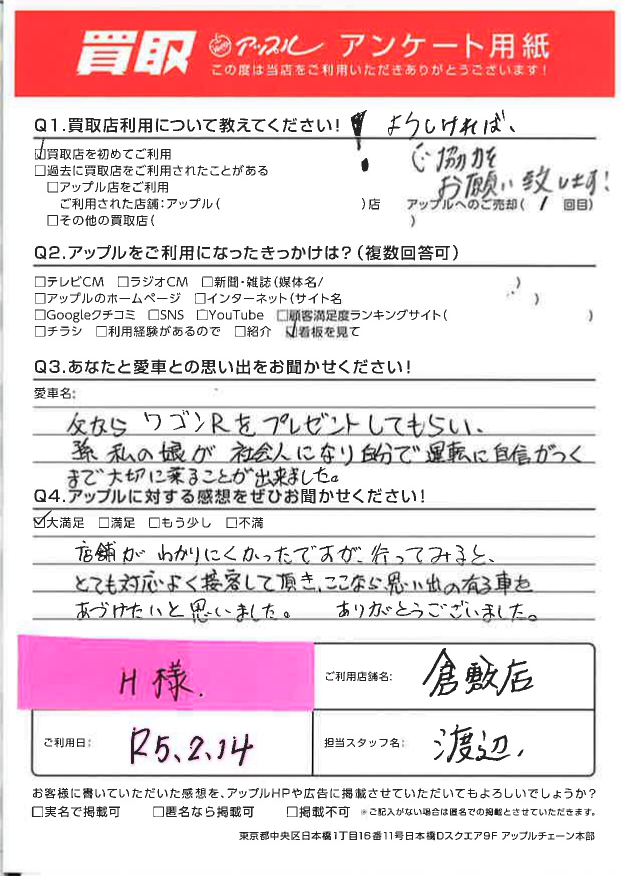 買取 アップル アンケート用紙
この度は当店をご利用いただきありがとうございます!
Q1.買取店利用について教えてください! ! よろしければ、
☑買取店を初めてご利用 ご協力を
□過去に買取店をご利用されたことがある お願い致します!
□アップル店をご利用
ご利用された店舗:アップル( )店 アップルへのご売却( 1 回目)
□その他の買取店( )
Q2.アップルをご利用になったきっかけは?(複数回答可)
□テレビCM □ラジオCM □新聞・雑誌(媒体名/ )
□アップルのホームページ □インターネット(サイト名 )
□Googleクチコミ □SNS □YouTube □顧客満足度ランキングサイト( )
□チラシ □利用経験があるので □紹介 ☑看板を見て
Q3.あなたと愛車との思い出をお聞かせください!
愛車名:
父なら ワゴンRをプレゼントしてもらい、
孫 私の娘が 社会人になり自分で運転に自信がつく
まで大切に乗ることが出来ました。
Q4.アップルに対する感想をぜひお聞かせください!
☑大満足 □満足 □もう少し □不満
店舗が わかりにくかったですが、行ってみると、
とても対応よく接客して頂き、ここなら思い出の有る車を
あづけたいと思いました。 ありがとうございました。
H様. ご利用店舗名: 倉敷店
ご利用日: R5.2.14 担当スタッフ名: 渡辺.
お客様に書いていただいた感想を、アップルHPや広告に掲載させていただいてもよろしいでしょうか?
□実名で掲載可 □匿名なら掲載可 □掲載不可 ※ご記入がない場合は匿名での掲載とさせていただきます。
東京都中央区日本橋1丁目16番11号日本橋Dスクエア9F アップルチェーン本部